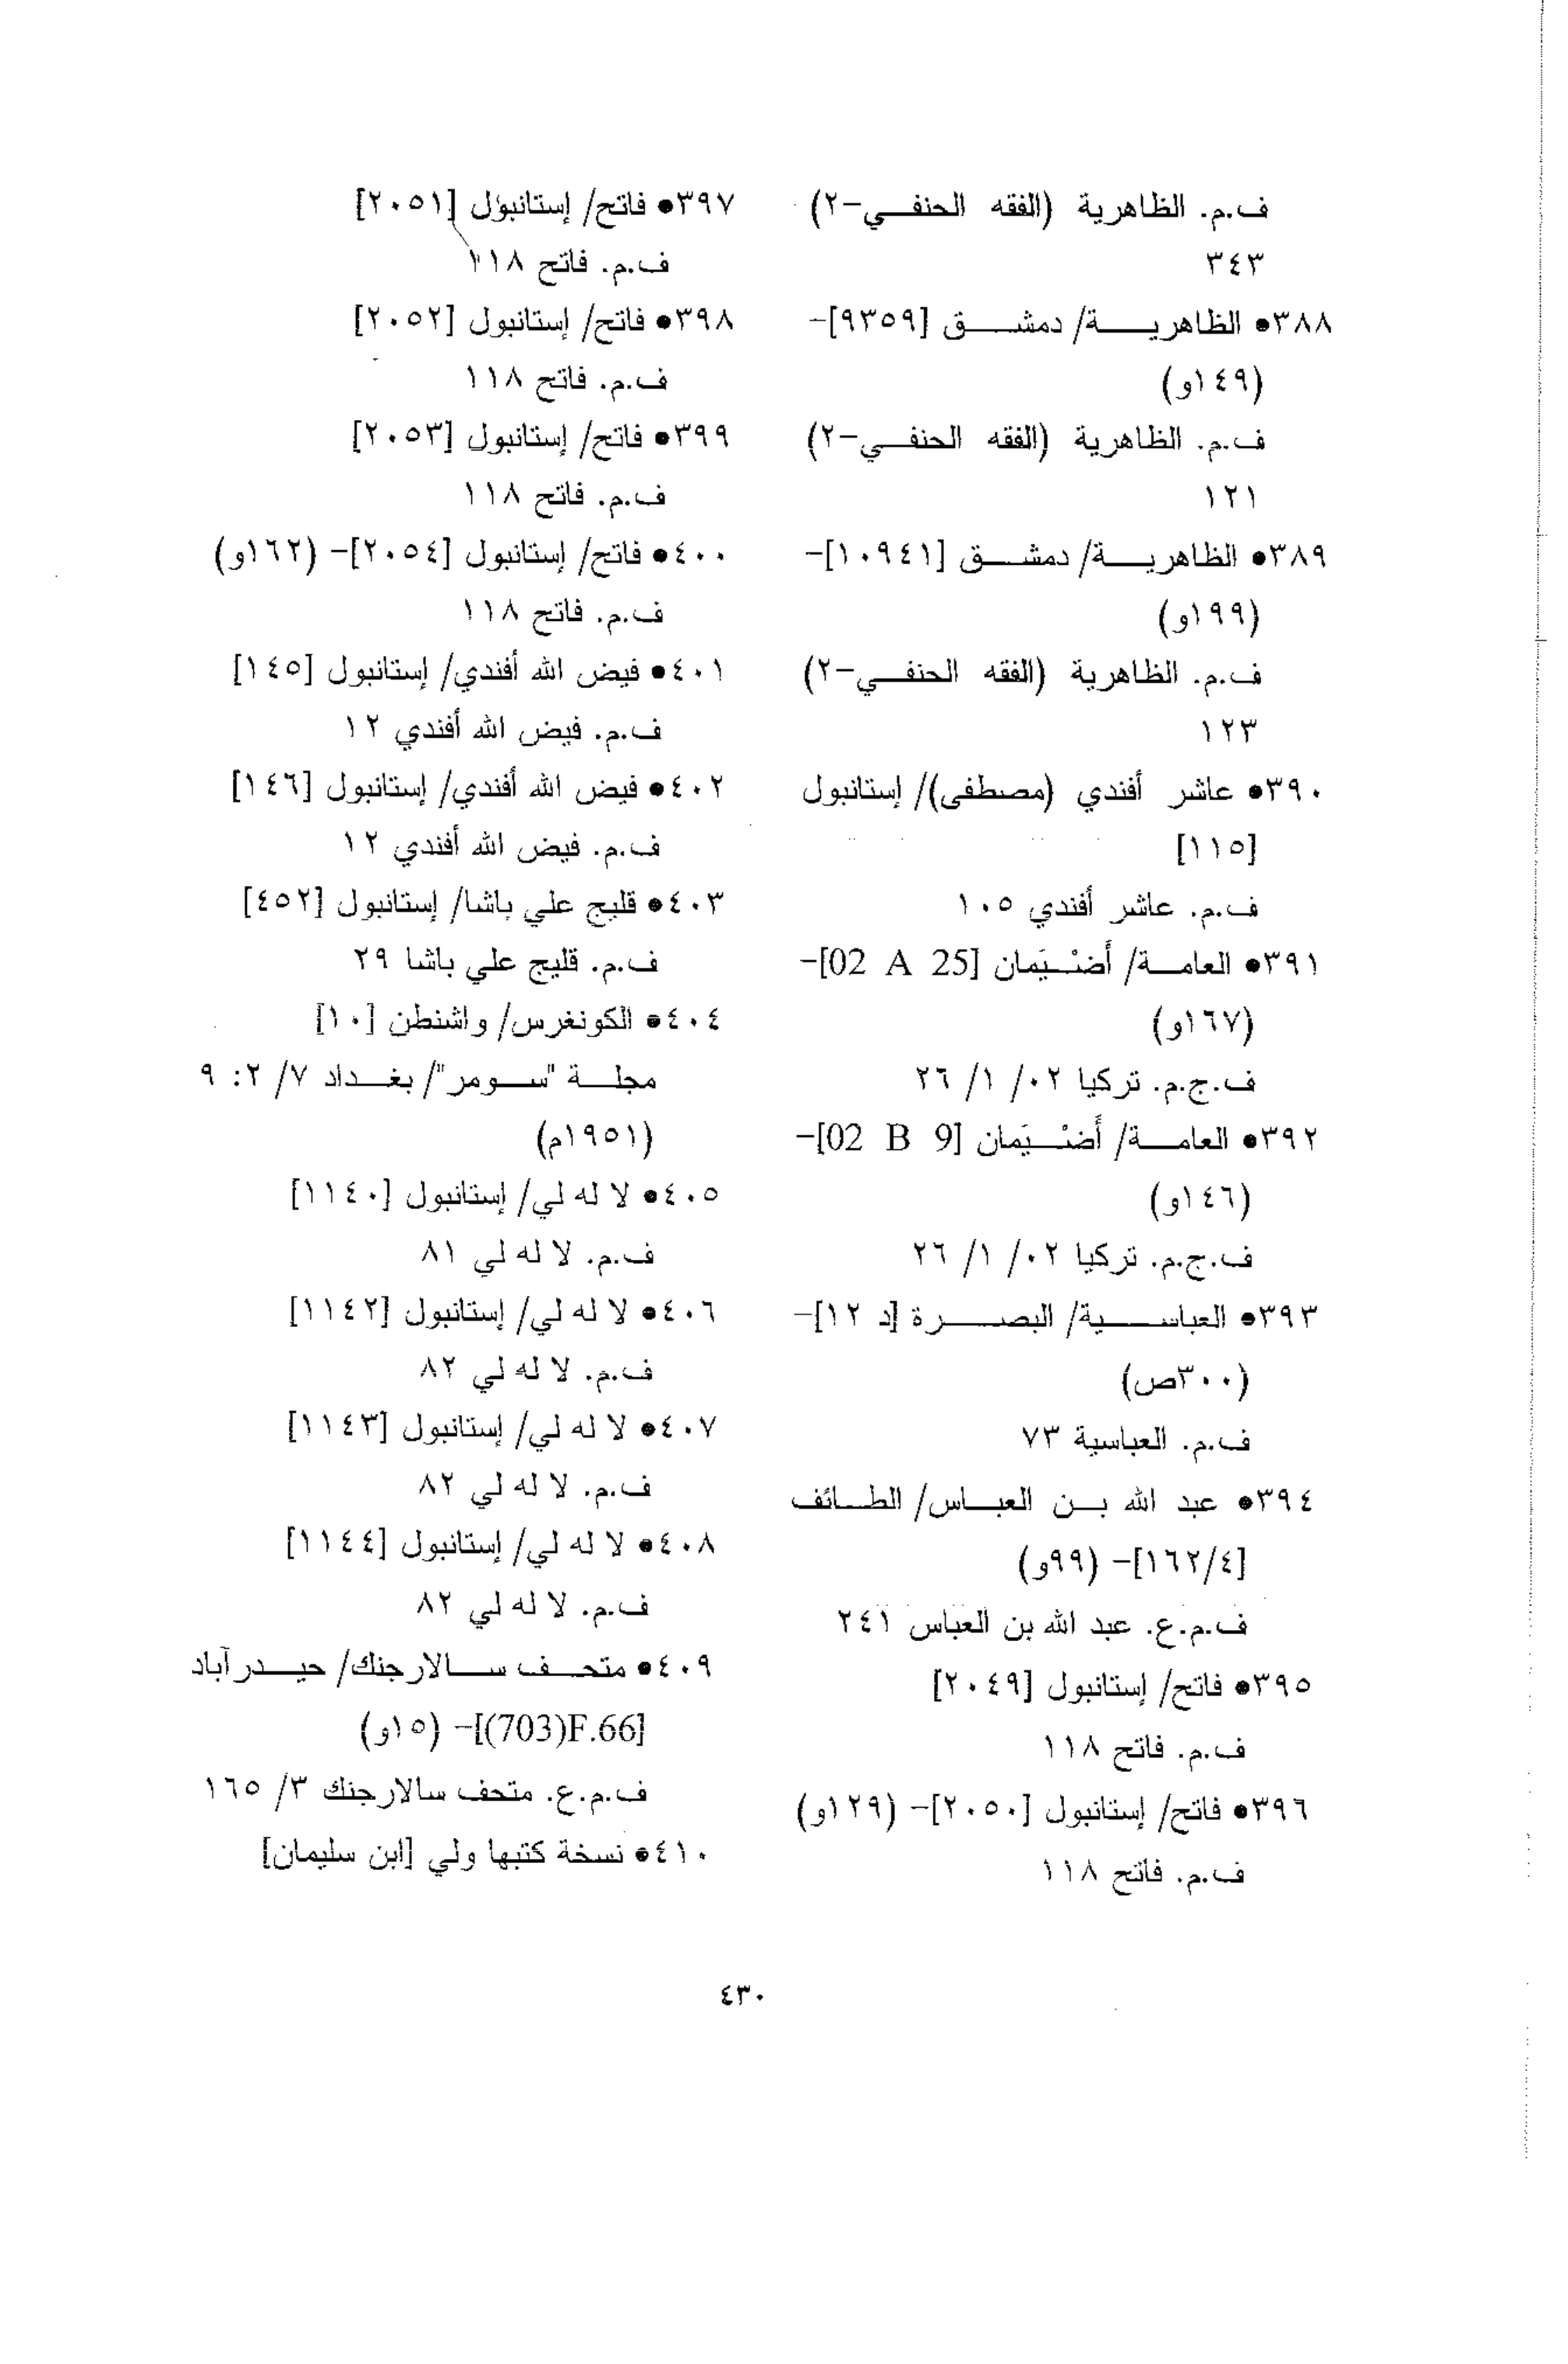 ف.م. الظاهرية (الفقه الحنفي-٢)
٣٤٣
٣٨٨• الظاهرية/ دمشق [٩٣٥٩]-
(١٤٩و)
ف.م. الظاهرية (الفقه الحنفي-٢)
١٢١
٣٨٩• الظاهرية/ دمشق [١٠٩٤١]-
(١٩٩و)
ف.م. الظاهرية (الفقه الحنفي-٢)
١٢٣
٣٩٠• عاشر أفندي (مصطفى)/ إستانبول
[١١٥]
ف.م. عاشر أفندي ١٠٥
٣٩١• العامة/ أضنْيَمان [02 A 25]-
(١٦٧و)
ف.ج.م. تركيا ٠٢/ ١/ ٢٦
٣٩٢• العامة/ أَضنْيَمان [02 B 9]-
(١٤٦و)
ف.ج.م. تركيا ٠٢/ ١/ ٢٦
٣٩٣• العباسية/ البصرة [د ١٢]-
(٣٠٠ص)
ف.م. العباسية ٧٣
٣٩٤• عبد الله بن العباس/ الطائف
[١٦٢/٤]- (٩٩و)
ف.م.ع. عبد الله بن العباس ٢٤١
٣٩٥• فاتح/ إستانبول [٢٠٤٩]
ف.م. فاتح ١١٨
٣٩٦• فاتح/ إستانبول [٢٠٥٠]- (١٢٩و)
ف.م. فاتح ١١٨
٣٩٧• فاتح/ إستانبول [٢٠٥١]
ف.م. فاتح ١١٨
٣٩٨• فاتح/ إستانبول [٢٠٥٢]
ف.م. فاتح ١١٨
٣٩٩• فاتح/ إستانبول [٢٠٥٣]
ف.م. فاتح ١١٨
٤٠٠• فاتح/ إستانبول [٢٠٥٤]- (١٦٢و)
ف.م. فاتح ١١٨
٤٠١• فيض الله أفندي/ إستانبول [١٤٥]
ف.م. فيض الله أفندي ١٢
٤٠٢• فيض الله أفندي/ إستانبول [١٤٦]
ف.م. فيض الله أفندي ١٢
٤٠٣• قليج علي باشا/ إستانبول [٤٥٢]
ف.م. قليج علي باشا ٢٩
٤٠٤• الكونغرس/ واشنطن [١٠]
مجلة "سومر"/ بغداد ٧/ ٢: ٩
(١٩٥١م)
٤٠٥• لا له لي/ إستانبول [١١٤٠]
ف.م. لا له لي ٨١
٤٠٦• لا له لي/ إستانبول [١١٤٢]
ف.م. لا له لي ٨٢
٤٠٧• لا له لي/ إستانبول [١١٤٣]
ف.م. لا له لي ٨٢
٤٠٨• لا له لي/ إستانبول [١١٤٤]
ف.م. لا له لي ٨٢
٤٠٩• متحف سالارجنك/ حيدرآباد
[(703)F.66]- (١٥و)
ف.م.ع. متحف سالارجنك ٣/ ١٦٥
٤١٠• نسخة كتبها ولي [ابن سليمان]
٤٣٠